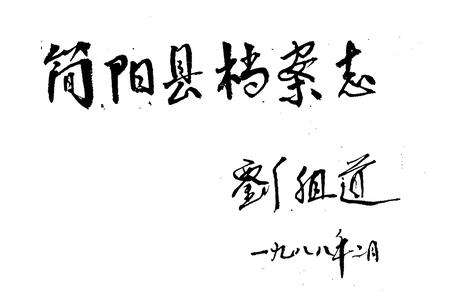 简阳县档案志
劉祖道
一九八八年二月